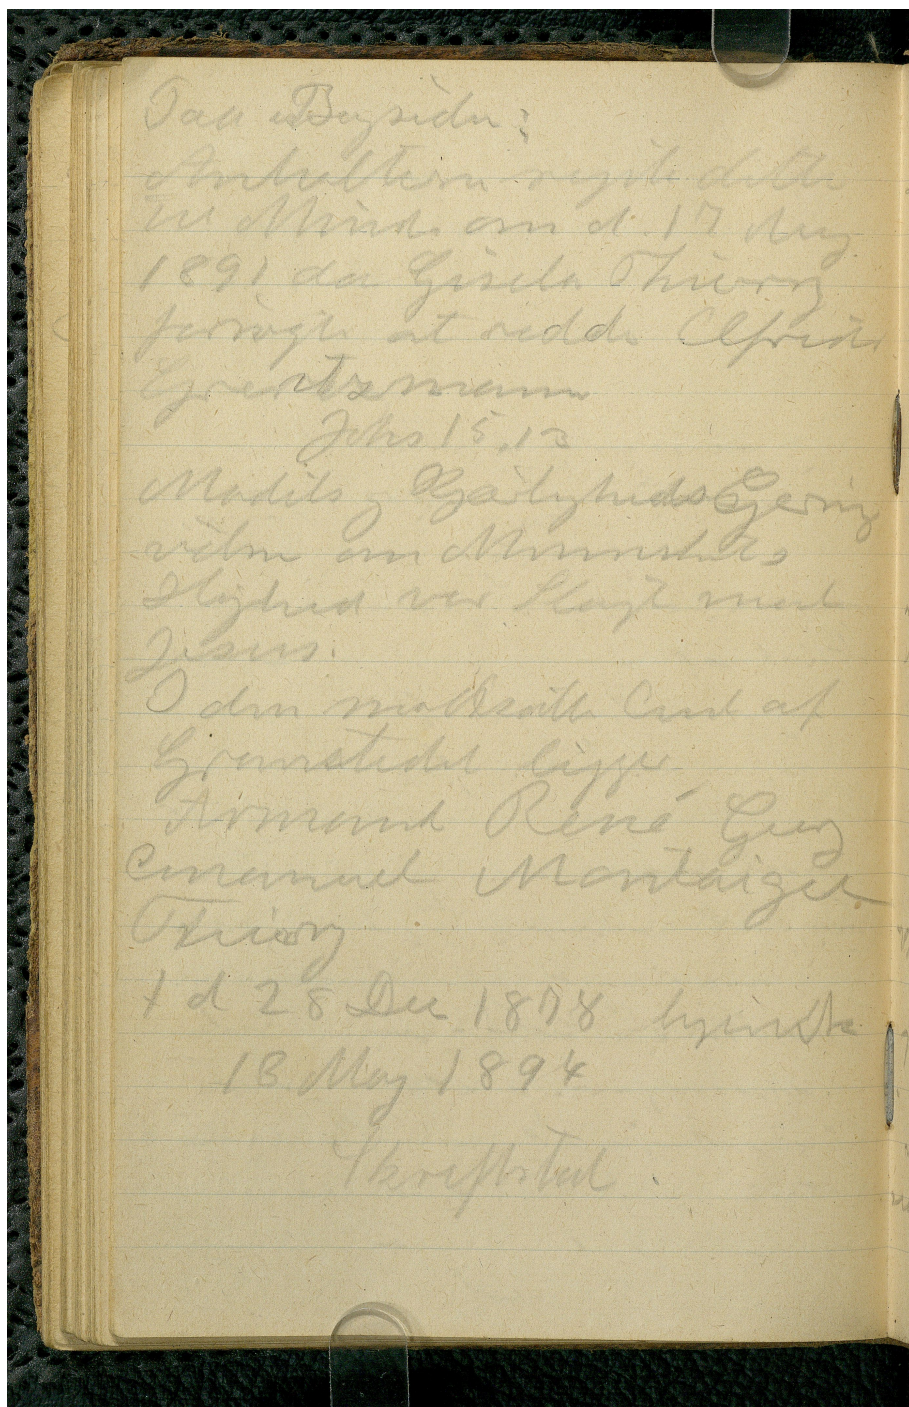 Paa Bagsiden:
Anholterne rejste dette
til Minde om d. 17 Aug
1891 da Gisela Thierry
forsøgte at redde Alfred
Grentzmann
Johs 15,13
Modets og Kjærligheds Gjerning
vidne om Menneskets
Højhed var Slægt med
Jesus.
I den modsatte End af
Gravstedet ligger
Armand René Guy
Emanuel Montaigu
Thierry
† d 28 Dec 1878
18 May 1894
Skriftsted.